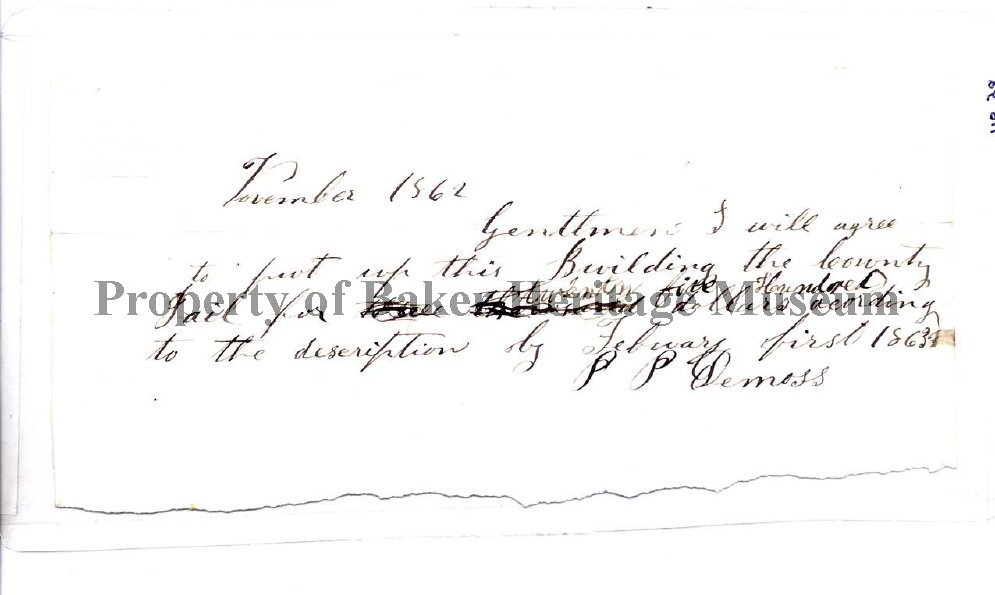 November 1862
Genttmen I will agree
to put up this Building the County
five Hundred
Jail for dollars acording
to the description by Febuary first 1863
P P Demoss
Property of Baker Heritage Museum